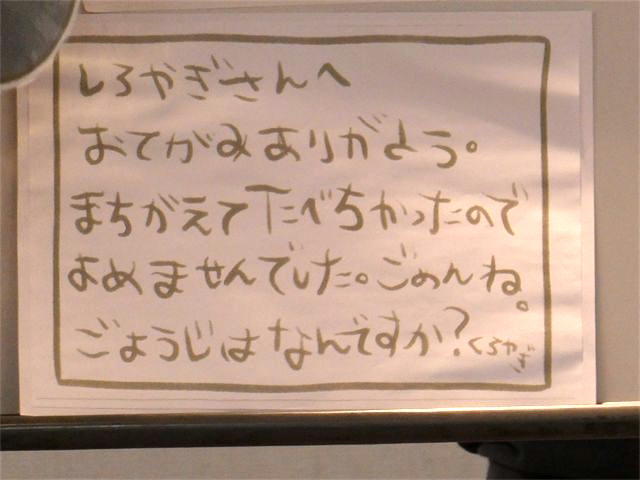 しろやぎさんへ
おてがみありがとう。
まちがえてたべちゃったので
よめませんでした。ごめんね。
ごようじはなんですか?くろやぎ